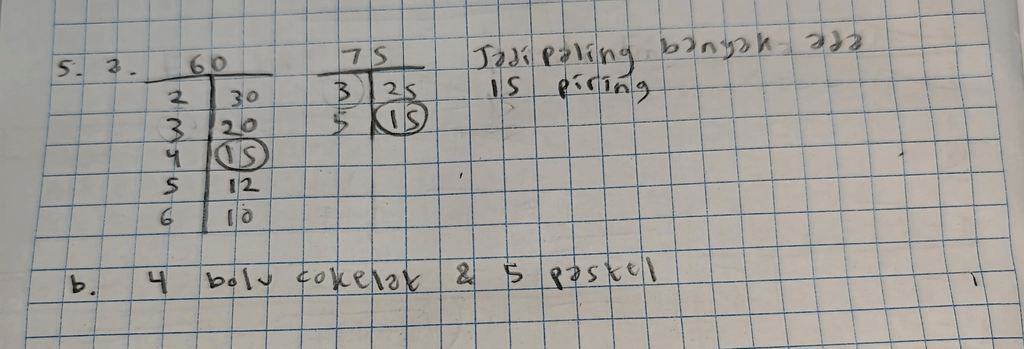 5. a. 60 75 Jadi paling banyak ada
2 30 3 25 15 piring
3 20 5 15
4 15
5 12
6 10
b. 4 bolu cokelat & 5 pastel